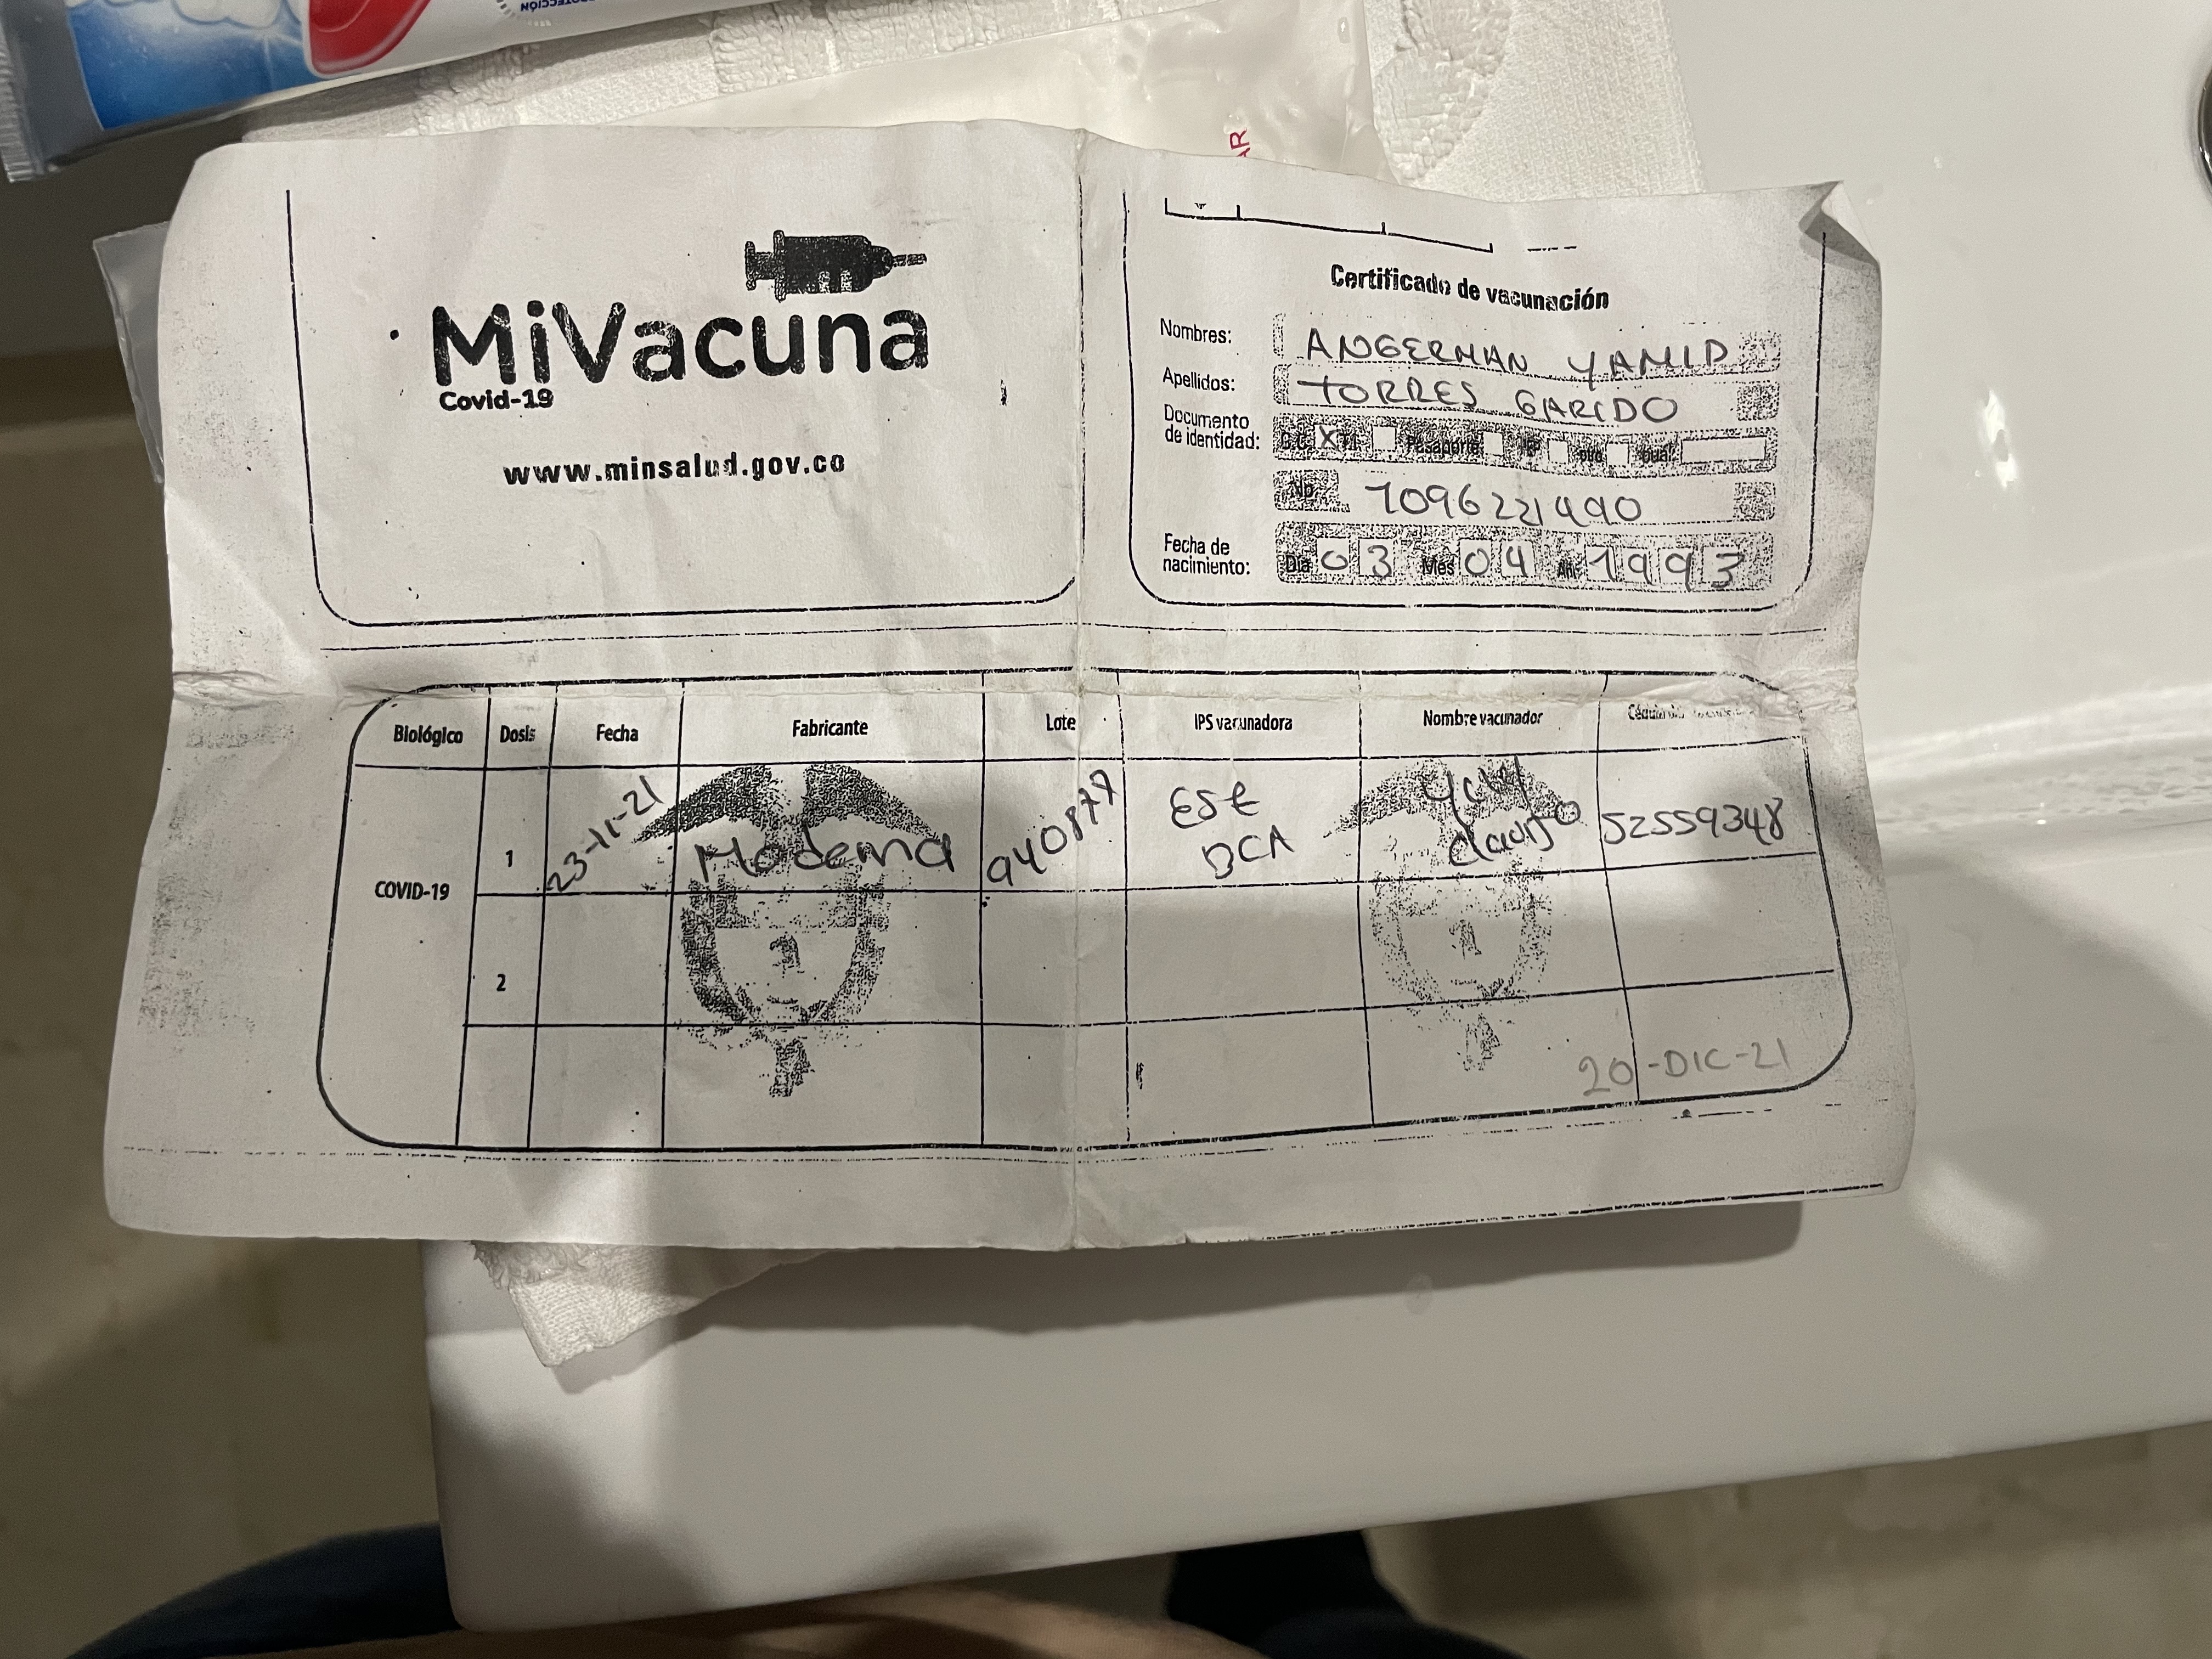 MiVacuna
Covid-19
www.minsalud.gov.co
Certificado de vacunación
Nombres: ANGERMAN YAMID
Apellidos: TORRES GARCIDO
Documento de identidad: C.C X Pasaporte
No 1096221490
Fecha de nacimiento: Día 03 Mes 04 Año 1993
Biológico Dosis Fecha Fabricante Lote IPS vacunadora Nombre vacunador
COVID-19
1 23-11-21 Moderna 940877 ESE BCA 52559348
2
20-DIC-21
AR